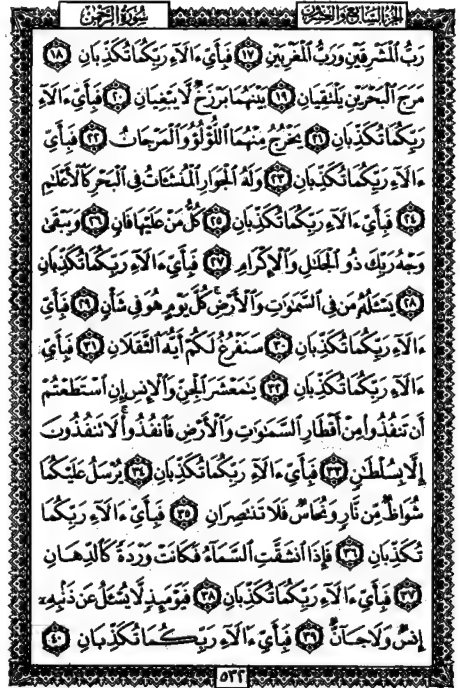 الجزء السابع والعشرون
سورة الرحمن
رَبُّ ٱلْمَشْرِقَيْنِ وَرَبُّ ٱلْمَغْرِبَيْنِ ١٧ فَبِأَيِّ ءَالَآءِ رَبِّكُمَا تُكَذِّبَانِ ١٨
مَرَجَ ٱلْبَحْرَيْنِ يَلْتَقِيَانِ ١٩ بَيْنَهُمَا بَرْزَخٌ لَّا يَبْغِيَانِ ٢٠ فَبِأَيِّ ءَالَآءِ
رَبِّكُمَا تُكَذِّبَانِ ٢١ يَخْرُجُ مِنْهُمَا ٱللُّؤْلُؤُ وَٱلْمَرْجَانُ ٢٢ فَبِأَيِّ
ءَالَآءِ رَبِّكُمَا تُكَذِّبَانِ ٢٣ وَلَهُ ٱلْجَوَارِ ٱلْمُنشَـَٔاتُ فِى ٱلْبَحْرِ كَٱلْأَعْلَـٰمِ
٢٤ فَبِأَيِّ ءَالَآءِ رَبِّكُمَا تُكَذِّبَانِ ٢٥ كُلُّ مَنْ عَلَيْهَا فَانٍ ٢٦ وَيَبْقَىٰ
وَجْهُ رَبِّكَ ذُو ٱلْجَلَـٰلِ وَٱلْإِكْرَامِ ٢٧ فَبِأَيِّ ءَالَآءِ رَبِّكُمَا تُكَذِّبَانِ
٢٨ يَسْـَٔلُهُۥ مَن فِى ٱلسَّمَـٰوَٰتِ وَٱلْأَرْضِ ۚ كُلَّ يَوْمٍ هُوَ فِى شَأْنٍ ٢٩ فَبِأَيِّ
ءَالَآءِ رَبِّكُمَا تُكَذِّبَانِ ٣٠ سَنَفْرُغُ لَكُمْ أَيُّهَ ٱلثَّقَلَانِ ٣١ فَبِأَيِّ
ءَالَآءِ رَبِّكُمَا تُكَذِّبَانِ ٣٢ يَـٰمَعْشَرَ ٱلْجِنِّ وَٱلْإِنسِ إِنِ ٱسْتَطَعْتُمْ
أَن تَنفُذُوا۟ مِنْ أَقْطَارِ ٱلسَّمَـٰوَٰتِ وَٱلْأَرْضِ فَٱنفُذُوا۟ ۚ لَا تَنفُذُونَ
إِلَّا بِسُلْطَـٰنٍ ٣٣ فَبِأَيِّ ءَالَآءِ رَبِّكُمَا تُكَذِّبَانِ ٣٤ يُرْسَلُ عَلَيْكُمَا
شُوَاظٌ مِّن نَّارٍ وَنُحَاسٌ فَلَا تَنتَصِرَانِ ٣٥ فَبِأَيِّ ءَالَآءِ رَبِّكُمَا
تُكَذِّبَانِ ٣٦ فَإِذَا ٱنشَقَّتِ ٱلسَّمَآءُ فَكَانَتْ وَرْدَةً كَٱلدِّهَانِ
٣٧ فَبِأَيِّ ءَالَآءِ رَبِّكُمَا تُكَذِّبَانِ ٣٨ فَيَوْمَئِذٍ لَّا يُسْـَٔلُ عَن ذَنۢبِهِۦٓ
إِنسٌ وَلَا جَآنٌّ ٣٩ فَبِأَيِّ ءَالَآءِ رَبِّكُمَا تُكَذِّبَانِ ٤٠
٥٣٢